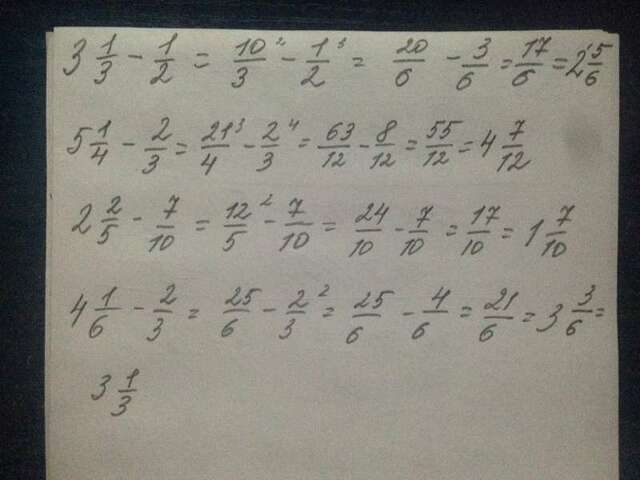 3 1/3 - 1/2 = 10/3 ² - 1/2 ³ = 20/6 - 3/6 = 17/6 = 2 5/6
5 1/4 - 2/3 = 21/4 ³ - 2/3 ⁴ = 63/12 - 8/12 = 55/12 = 4 7/12
2 2/5 - 7/10 = 12/5 ² - 7/10 = 24/10 - 7/10 = 17/10 = 1 7/10
4 1/6 - 2/3 = 25/6 - 2/3 ² = 25/6 - 4/6 = 21/6 = 3 3/6 =
3 1/3